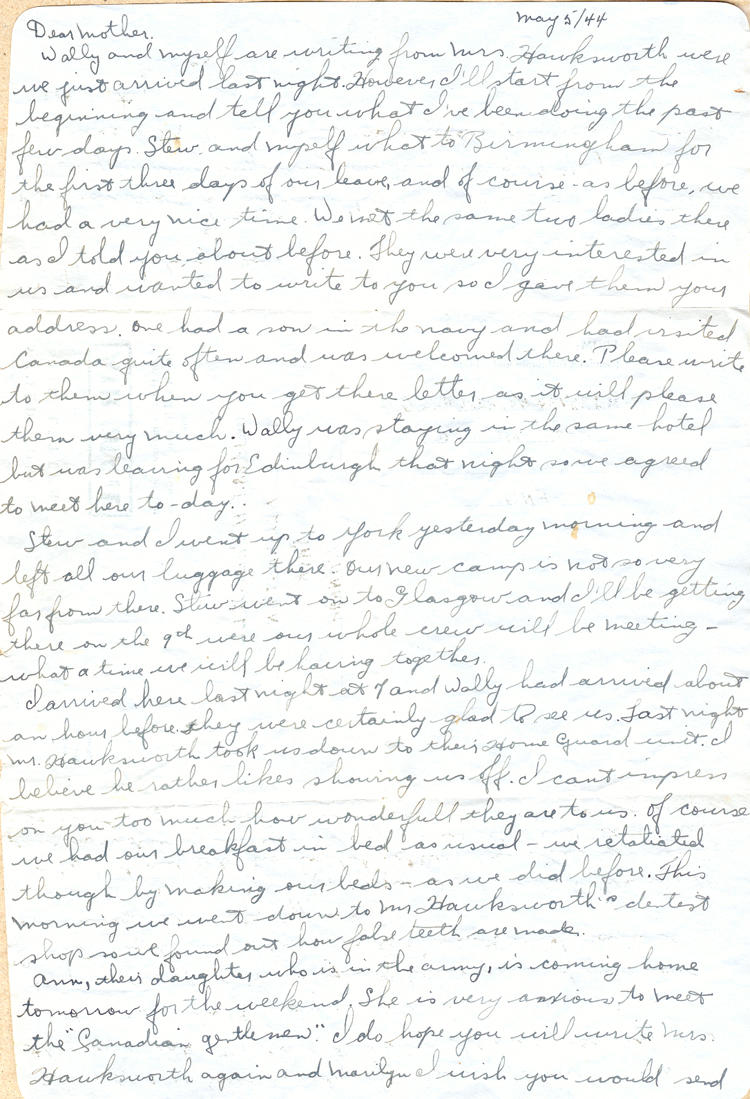 May 5/44
Dear Mother.
Wally and myself are writing from Mrs. Hawksworth were
we just arrived last night. However, I'll start from the
beginning and tell you what I've been doing the past
few days. Stew. and myself what to Birmingham for
the first three days of our leave, and of course - as before, we
had a very nice time. We met the same two ladies there
as I told you about before. They were very interested in
us and wanted to write to you so I gave them your
address. One had a son in the navy and had visited
Canada quite often and was welcomed there. Please write
to them when you get there letter as it will please
them very much. Wally was staying in the same hotel
but was leaving for Edinburgh that night so we agreed
to meet here to-day.
Stew and I went up to York yesterday morning and
left all our luggage there. Our new camp is not so very
far from there. Stew went on to Glasgow and I'll be getting
there on the 9th were our whole crew will be meeting -
what a time we will be having together.
I arrived here last night at 7 and Wally had arrived about
an hour before. They were certainly glad to see us. Last night
Mr. Hawksworth took us down to their Home Guard unit. I
believe he rather likes showing us off. I cant impress
on you too much how wonderfull they are to us. Of course
we had our breakfast in bed as usual - we retaliated
though by making our beds - as we did before. This
morning we went down to Mr. Hawksworth's dentest
shop so we found out how false teeth are made.
Ann, their daughter who is in the army, is coming home
tomorrow for the weekend. She is very anxious to meet
the "Canadian gentlemen". I do hope you will write Mrs.
Hawksworth again and Marilyn I wish you would send